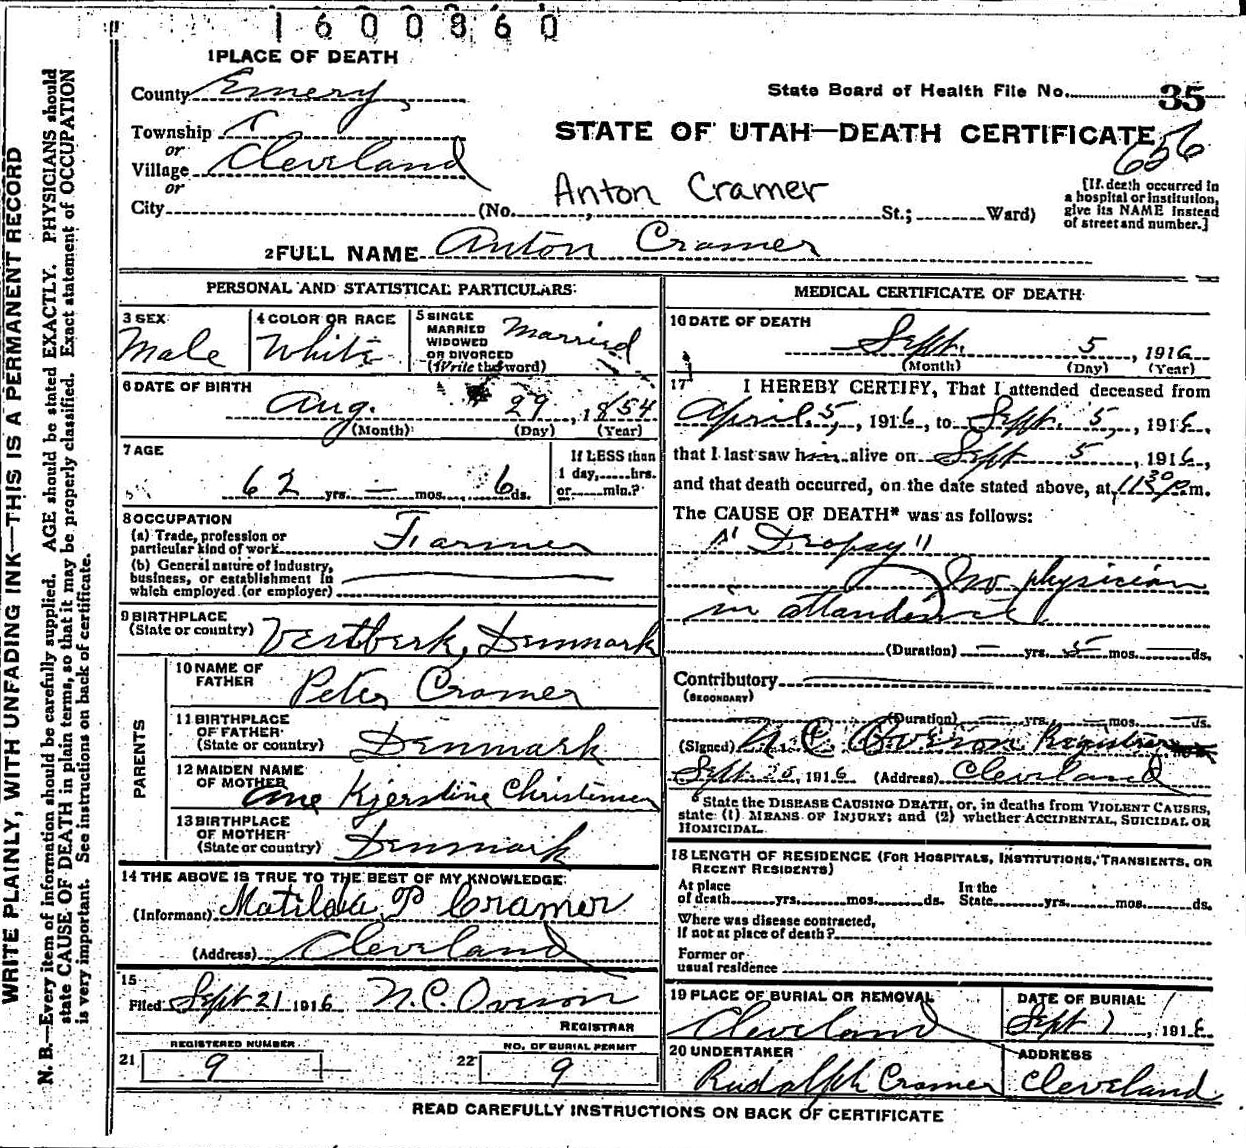 1600860
1 PLACE OF DEATH
County Emery
State Board of Health File No. 35
STATE OF UTAH—DEATH CERTIFICATE
656
Township
or
Village Cleveland
or
City (No. , St.; Ward)
Anton Cramer
[If death occurred in
a hospital or institution,
give its NAME instead
of street and number.]
2 FULL NAME Anton Cramer
PERSONAL AND STATISTICAL PARTICULARS
3 SEX
Male
4 COLOR OR RACE
White
5 SINGLE
MARRIED
WIDOWED
OR DIVORCED
(Write the word)
Married
6 DATE OF BIRTH
Aug. 29, 1854
(Month) (Day) (Year)
7 AGE
62 yrs. — mos. 6 ds.
If LESS than
1 day, hrs.
or min.?
8 OCCUPATION
(a) Trade, profession or
particular kind of work Farmer
(b) General nature of industry,
business, or establishment in
which employed (or employer)
9 BIRTHPLACE
(State or country) Denmark
PARENTS
10 NAME OF
FATHER
Peter Cramer
11 BIRTHPLACE
OF FATHER
(State or country) Denmark
12 MAIDEN NAME
OF MOTHER
Ane Kjerstine Christensen
13 BIRTHPLACE
OF MOTHER
(State or country) Denmark
14 THE ABOVE IS TRUE TO THE BEST OF MY KNOWLEDGE
(Informant) Matilda P Cramer
(Address) Cleveland
15
Filed Sept 21 1916 N.C. Overson
REGISTRAR
21 REGISTERED NUMBER
9
22 NO. OF BURIAL PERMIT
9
MEDICAL CERTIFICATE OF DEATH
16 DATE OF DEATH
Sept. 5, 1916
(Month) (Day) (Year)
17 I HEREBY CERTIFY, That I attended deceased from
April 5, 1916, to Sept. 5, 1916,
that I last saw him alive on Sept 5, 1916,
and that death occurred, on the date stated above, at 11 30 p.m.
The CAUSE OF DEATH* was as follows:
"Dropsy"
No physician
in attendance
(Duration) — yrs. 5 mos. — ds.
Contributory
(SECONDARY)
(Duration) — yrs. — mos. — ds.
(Signed) N.C. Overson Registrar
Sept. 20, 1916 (Address) Cleveland
* State the DISEASE CAUSING DEATH, or, in deaths from VIOLENT CAUSES,
state (1) MEANS OF INJURY; and (2) whether ACCIDENTAL, SUICIDAL OR
HOMICIDAL.
18 LENGTH OF RESIDENCE (FOR HOSPITALS, INSTITUTIONS, TRANSIENTS, OR
RECENT RESIDENTS)
At place
of death yrs. mos. ds.
In the
State yrs. mos. ds.
Where was disease contracted,
if not at place of death?
Former or
usual residence
19 PLACE OF BURIAL OR REMOVAL
Cleveland
DATE OF BURIAL
Sept 7, 1916
20 UNDERTAKER
Rudolph Cramer
ADDRESS
Cleveland
READ CAREFULLY INSTRUCTIONS ON BACK OF CERTIFICATE
WRITE PLAINLY, WITH UNFADING INK—THIS IS A PERMANENT RECORD
N. B.—Every item of information should be carefully supplied. AGE should be stated EXACTLY. PHYSICIANS should
state CAUSE OF DEATH in plain terms, so that it may be properly classified. Exact statement of OCCUPATION
is very important. See instructions on back of certificate.